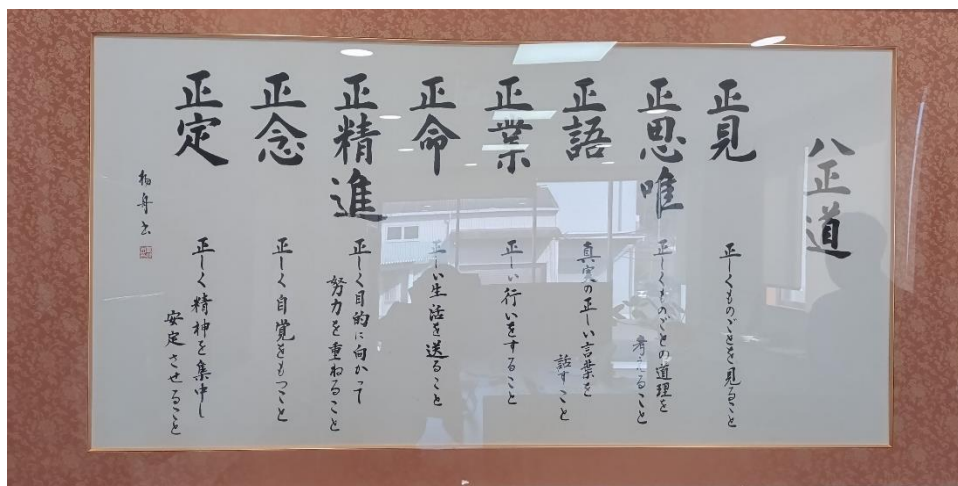 八正道
正見
正しくものごとを見ること
正思唯
正しくものごとの道理を
考えること
正語
真実の正しい言葉を
話すこと
正業
正しい行いをすること
正命
正しい生活を送ること
正精進
正しく目的に向かって
努力を重ねること
正念
正しく自覚をもつこと
正定
正しく精神を集中し
安定させること
舟書